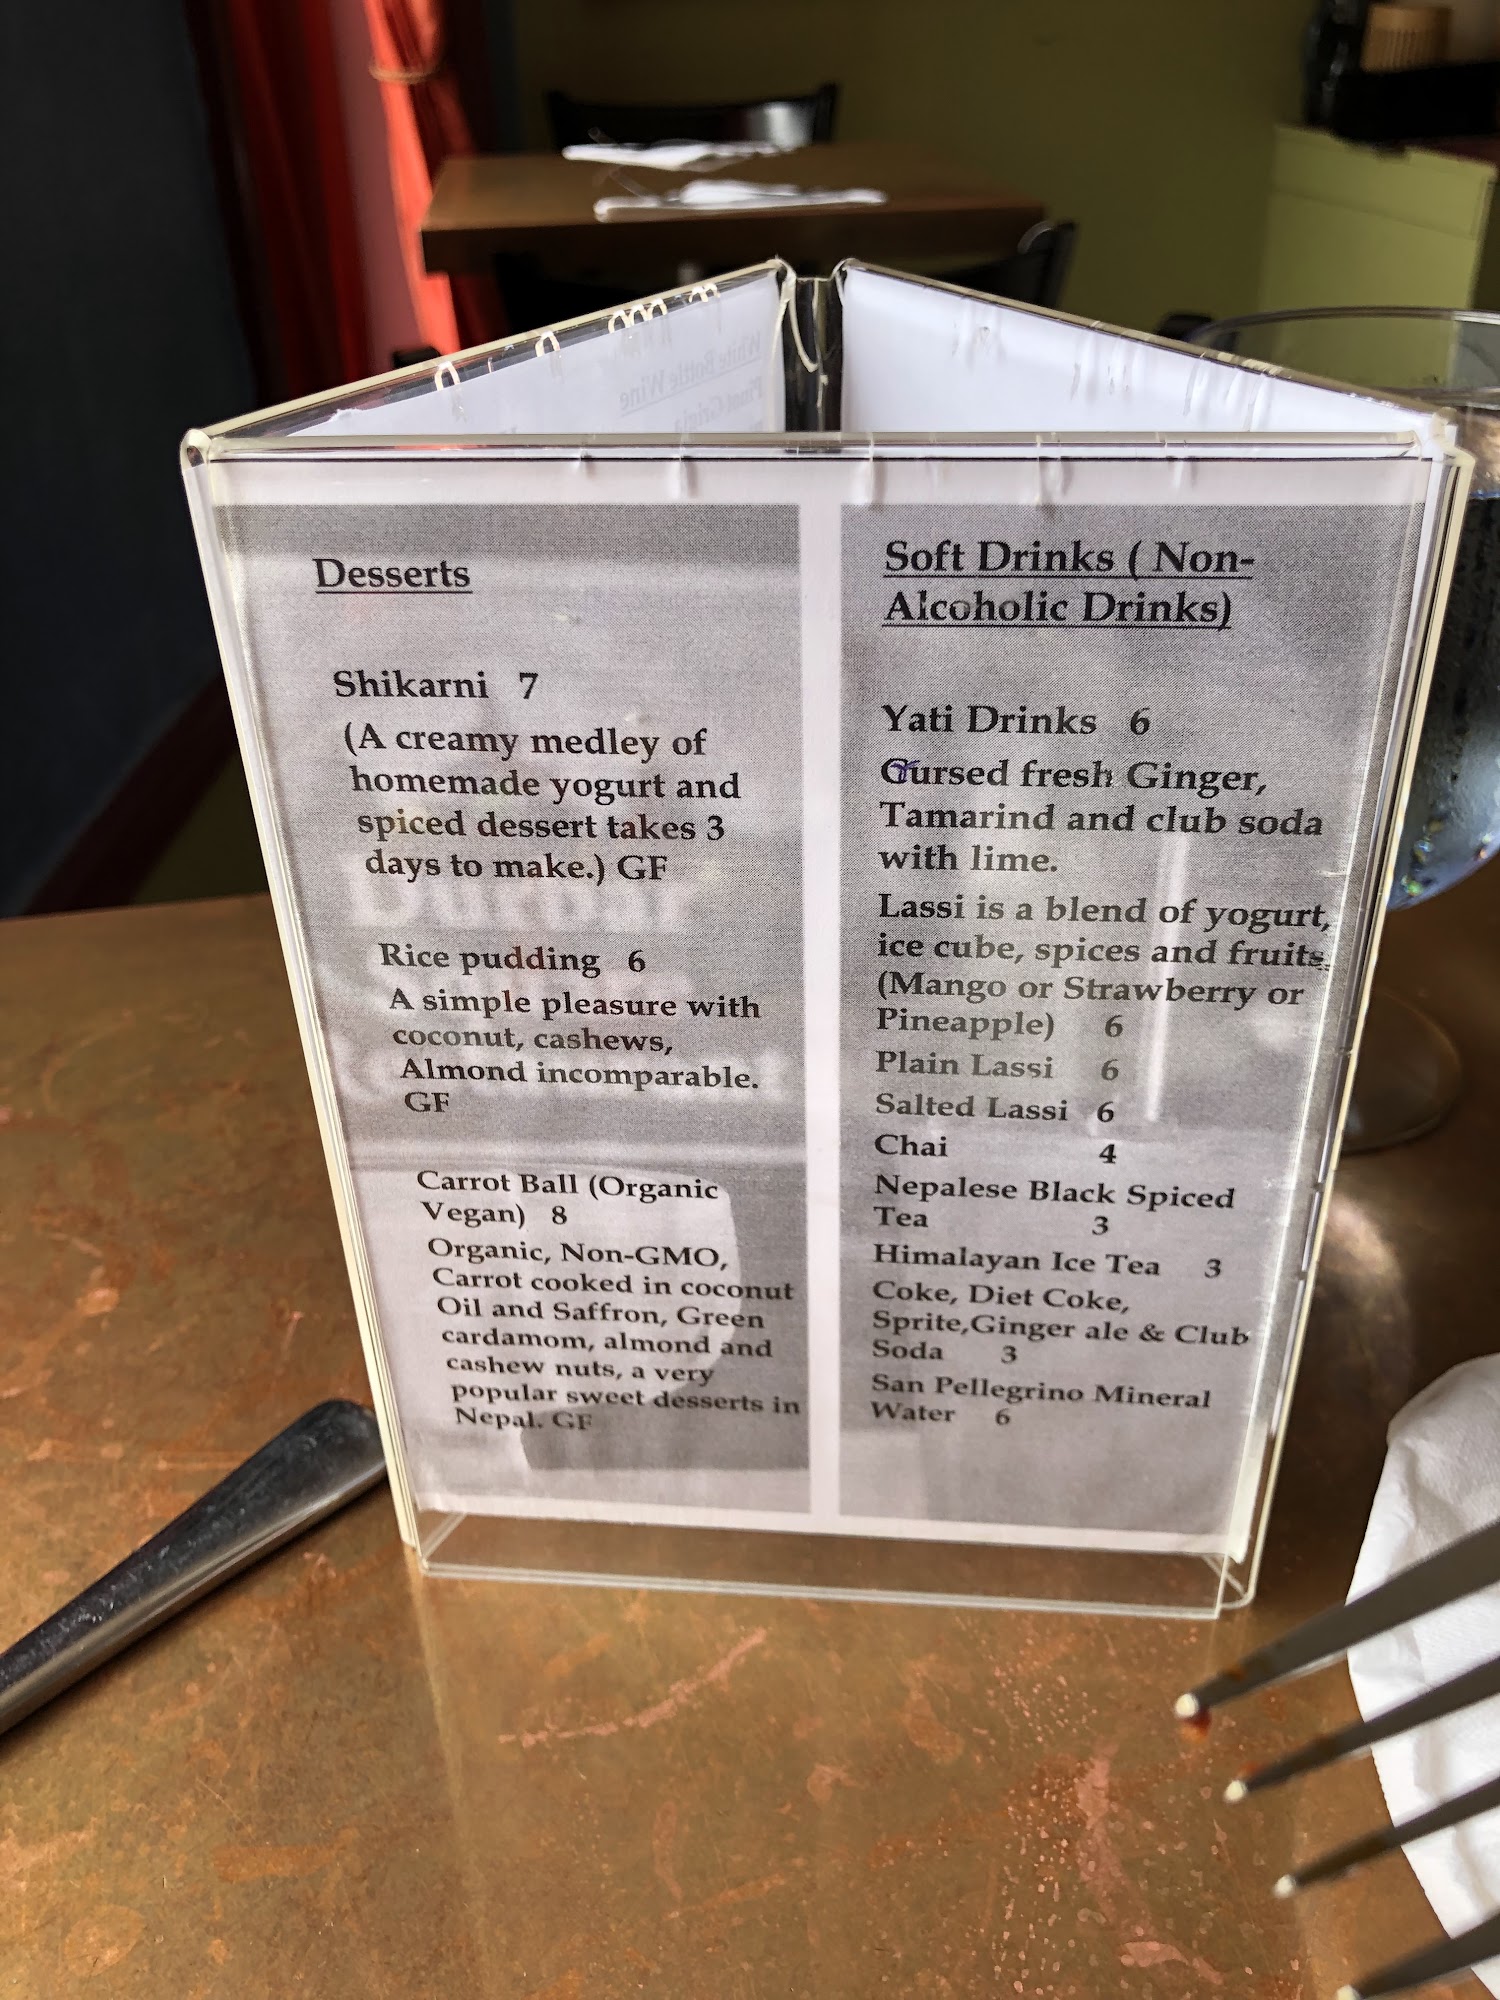 Desserts
Shikarni 7
(A creamy medley of
homemade yogurt and
spiced dessert takes 3
days to make.) GF
Rice pudding 6
A simple pleasure with
coconut, cashews,
Almond incomparable.
GF
Carrot Ball (Organic
Vegan) 8
Organic, Non-GMO,
Carrot cooked in coconut
Oil and Saffron, Green
cardamom, almond and
cashew nuts, a very
popular sweet desserts in
Nepal. GF
Soft Drinks ( Non-
Alcoholic Drinks)
Yati Drinks 6
fresh Ginger,
Tamarind and club soda
with lime.
Lassi is a blend of yogurt,
ice cube, spices and fruits.
(Mango or Strawberry or
Pineapple) 6
Plain Lassi 6
Salted Lassi 6
Chai 4
Nepalese Black Spiced
Tea 3
Himalayan Ice Tea 3
Coke, Diet Coke,
Sprite,Ginger ale & Club
Soda 3
San Pellegrino Mineral
Water 6
White Bottle Wine